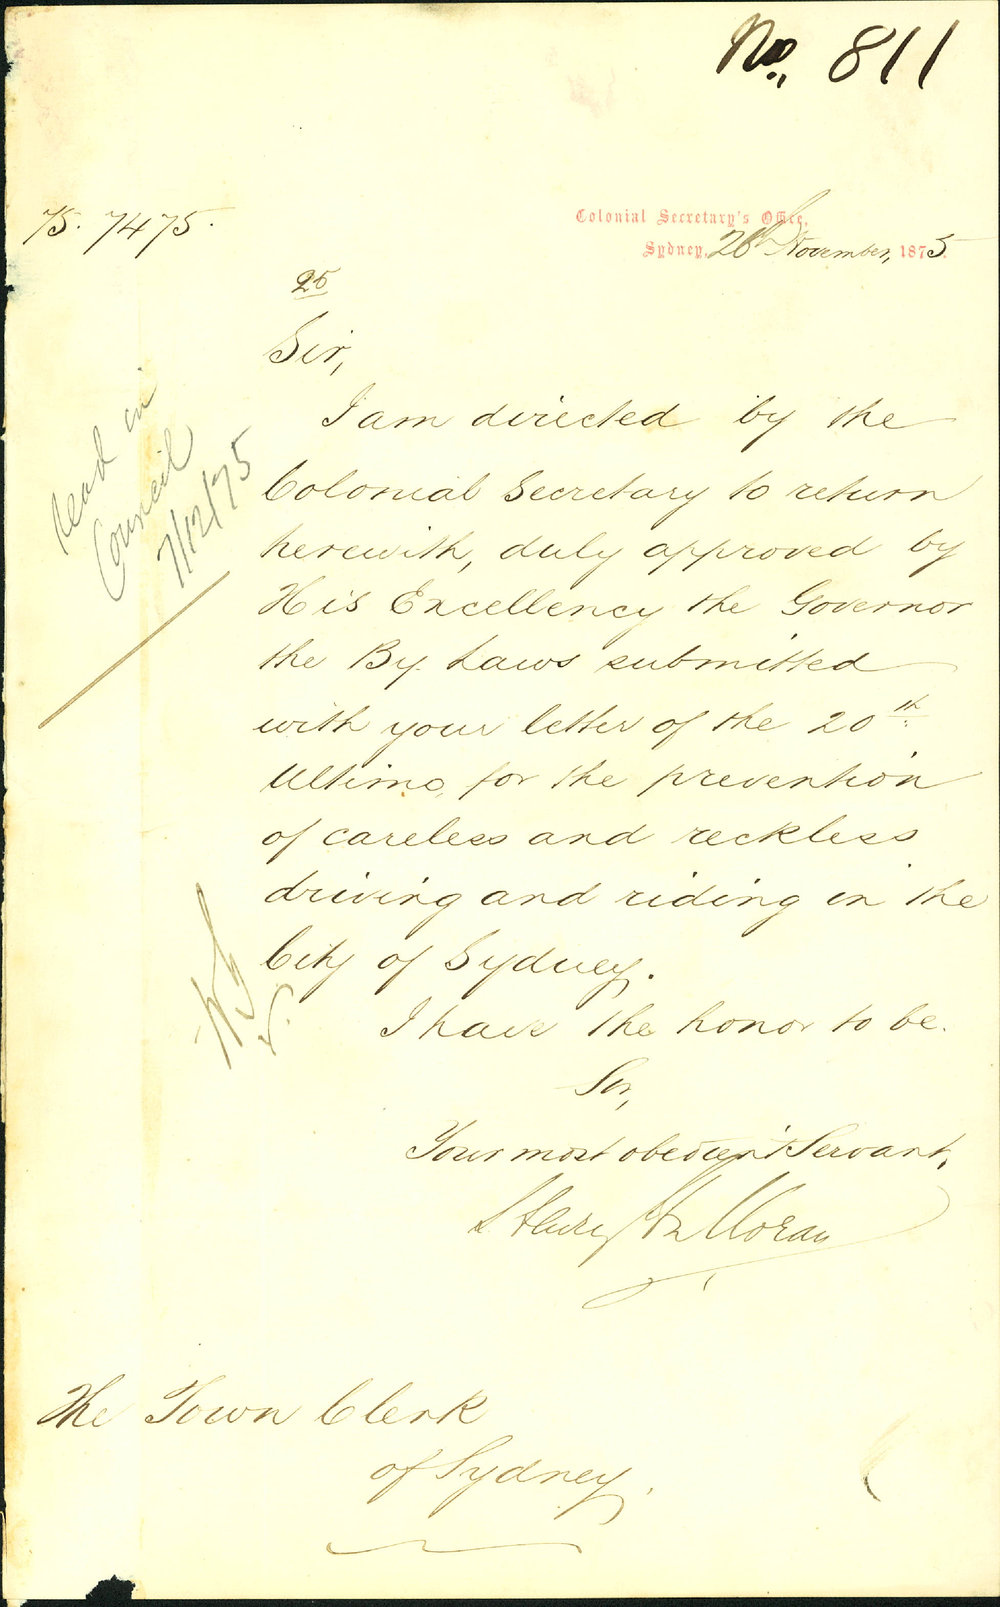 No. 811
75. 7475.
Colonial Secretary's Office,
Sydney, 26th November, 1875.
25
Sir,
I am directed by the
Colonial Secretary to return
herewith, duly approved by
His Excellency the Governor
the By Laws submitted
with your letter of the 20th
Ultimo, for the prevention
of careless and reckless
driving and riding in the
City of Sydney.
I have the honor to be.
Sir,
Your most obedient Servant,
Henry Halloran
The Town Clerk
of Sydney.
Read in
Council
7/12/75